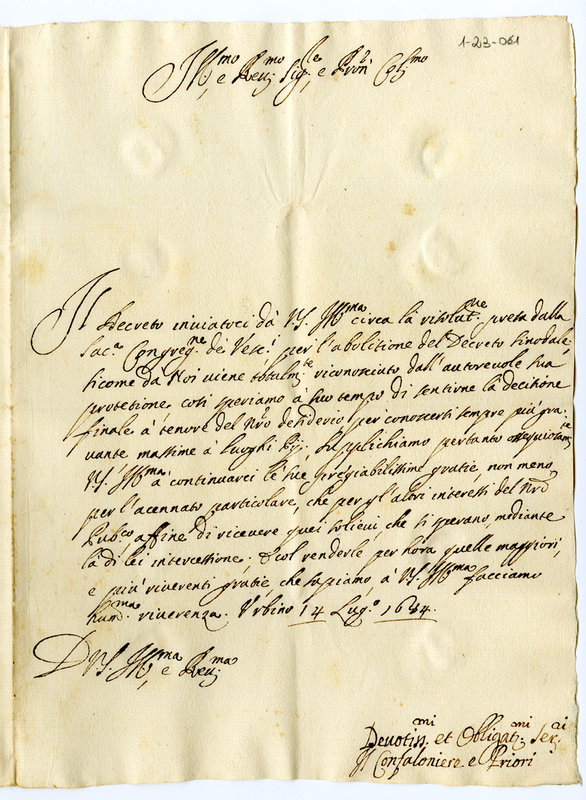 1-23-061
Ill.mo e Reu.mo Sig.re e Pron Col.mo
Il decreto inuiatoci da V.S. Ill.ma circa la risolut.ne presa dalla
Sac.a Congreg.ne de Vesc.i per l'abolitione del Decreto sinodale,
sicome da Noi uiene totalm.te riconosciuto dall'autoreuole sua
protetione, così speriamo à suo tempo di sentirne la decisione
finale à tenore del Nro desiderio per conoscersi sempre più gra-
uante massime à Luoghi Pij. Supplichiamo pertanto ossequiosam.te
V.S. Ill.ma à continuarci le sue pregiabilissime gratie non meno
per l'acennato particolare, che per gl'altri interessi del Nro
Pub.co affine di riceuere quei solieui, che si sperano mediante
la di lei intercessione; & col renderle per hora quelle maggiori,
e più riuerenti gratie che sapiamo, à V.S. Ill.ma facciamo
hum.ma riuerenza. Urbino 14 Lug.o 1684.
D V.S. Ill.ma e Reu.ma
Deuotiss.mi et Obligat.mi Ser.ri
Il Confaloniero e Priori